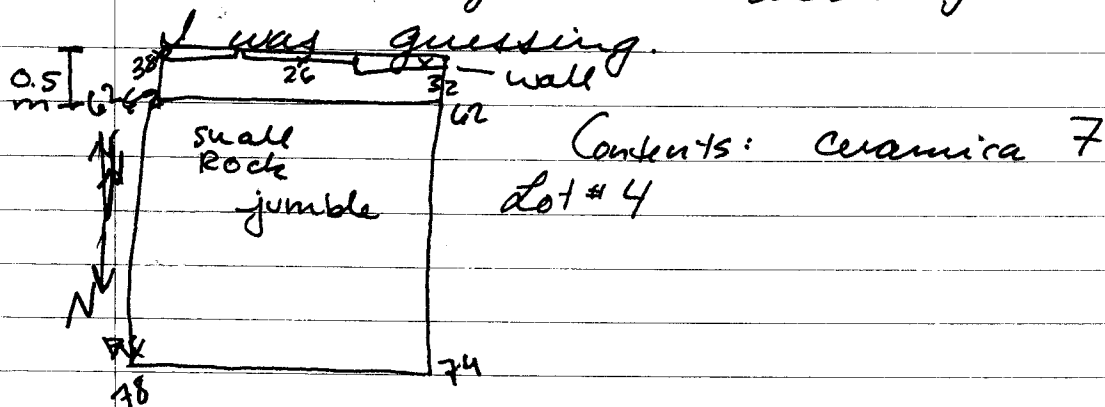 I was guessing.
0.5
m
38
26
32
wall
62
62
small
Rock
jumble
Contents: ceramica 7
Lot # 4
N
78
74